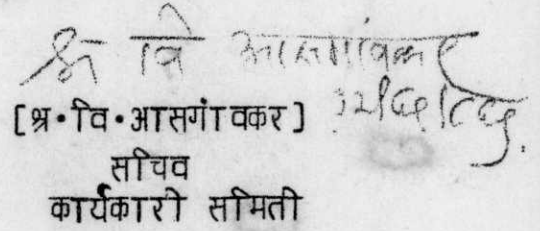 श्र वि आसगांवकर
[श्र·वि·आसगांवकर]
सचिव
कार्यकारी समिती